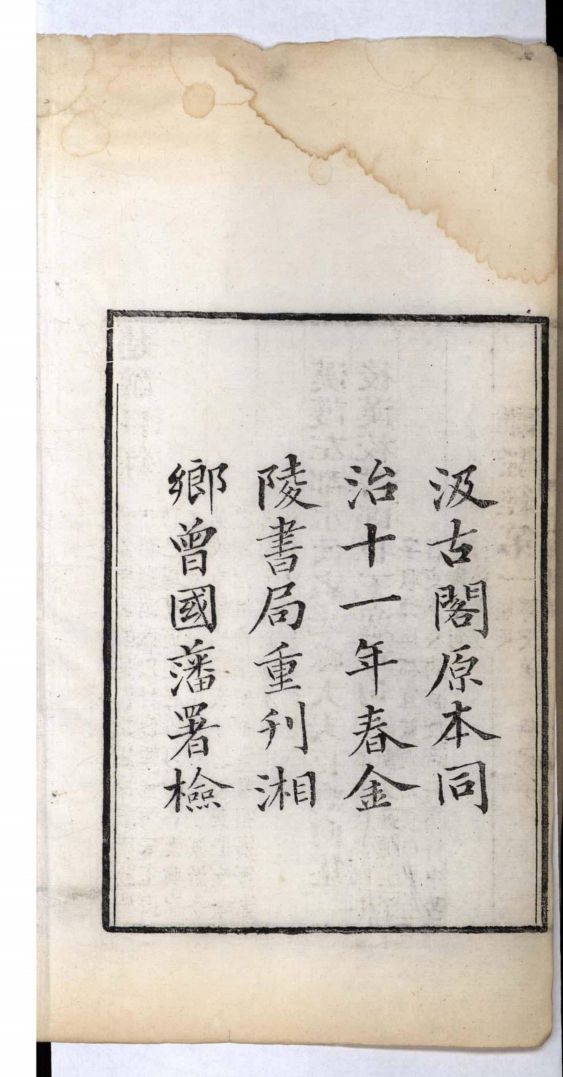 汲古閣原本同
治十一年春金
陵書局重刊湘
鄉曾國藩署檢